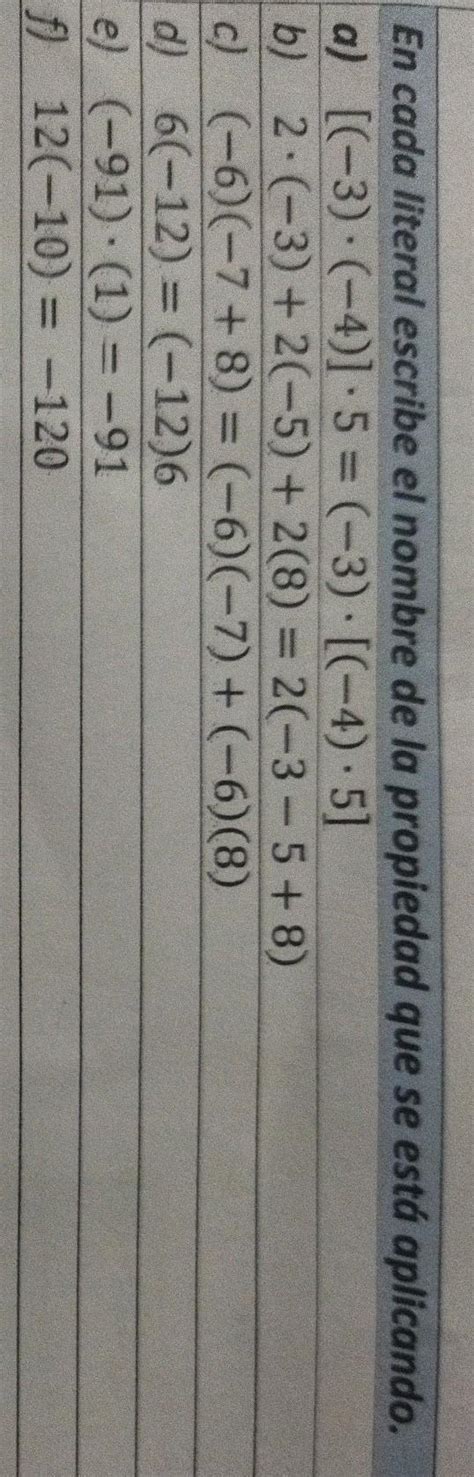 En cada literal escribe el nombre de la propiedad que se está aplicando.
a) [(−3)·(−4)]·5 = (−3)·[(−4)·5]
b) 2·(−3) + 2(−5) + 2(8) = 2(−3 − 5 + 8)
c) (−6)(−7 + 8) = (−6)(−7) + (−6)(8)
d) 6(−12) = (−12)6
e) (−91)·(1) = −91
f) 12(−10) = −120